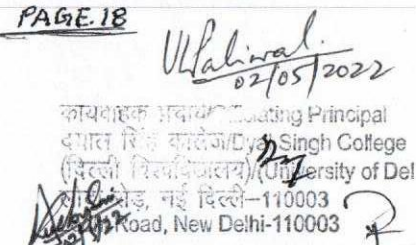 PAGE.18
VKPaliwal.
02/05/2022
कार्यवाहक प्राचार्य/Officiating Principal
दयाल सिंह कालेज/Dyal Singh College
(दिल्ली विश्वविद्यालय)/(University of Del
रोड, नई दिल्ली–110003
Road, New Delhi-110003